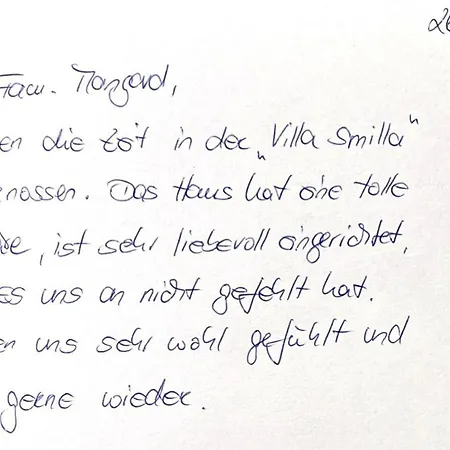 26
Frau. Mangard,
en die Zeit in der „Villa Smilla"
nossen. Das Haus hat eine tolle
e, ist sehr liebevoll eingerichtet,
es uns an nicht gefehlt hat.
en uns sehr wohl gefühlt und
gerne wieder.